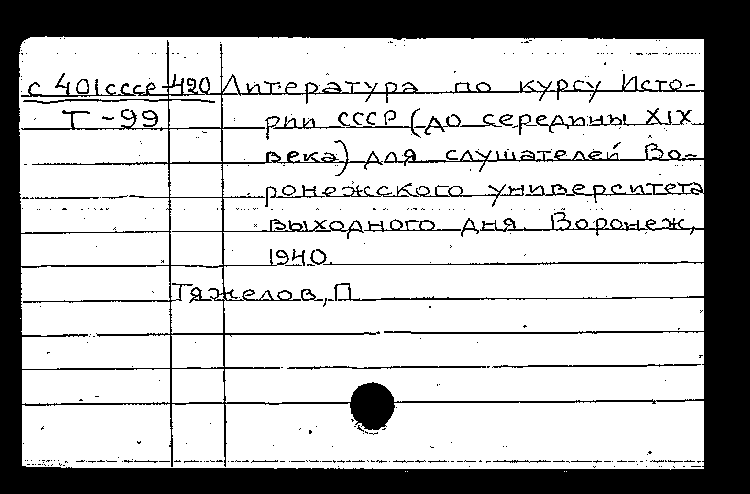 с 401ссср-420 Литература по курсу Исто-
Т-99 рии СССР (до середины XIX
века) для слушателей Во-
ронежского университета
выходного дня. Воронеж,
1940.
Тяжелов, П